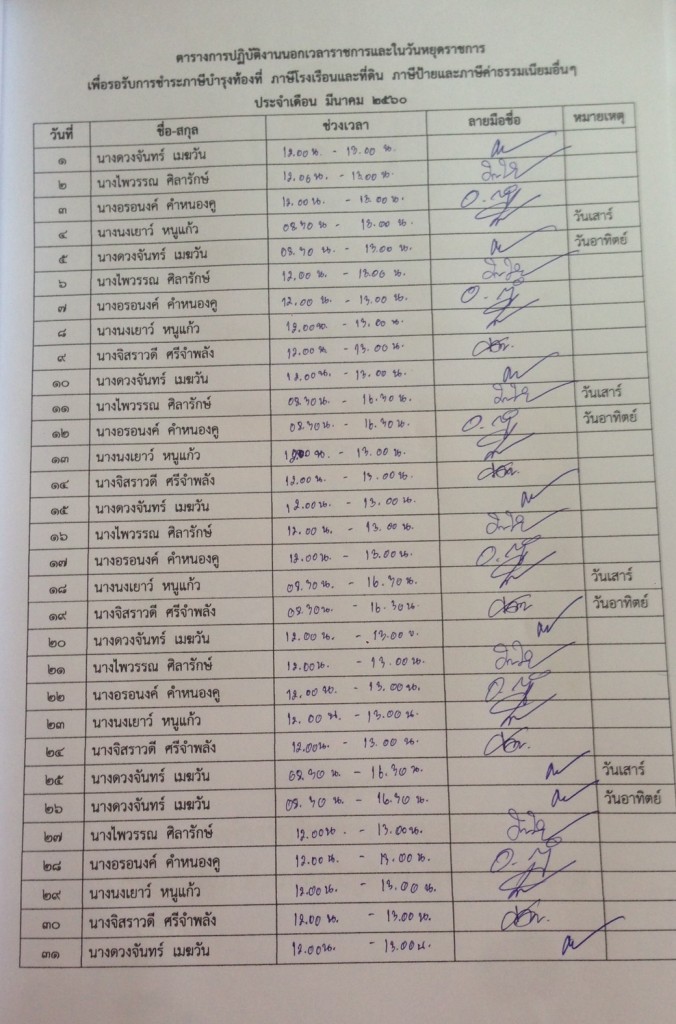 ตารางการปฏิบัติงานนอกเวลาราชการและในวันหยุดราชการ
เพื่อรอรับการชำระภาษีบำรุงท้องที่ ภาษีโรงเรือนและที่ดิน ภาษีป้ายและภาษีค่าธรรมเนียมอื่นๆ
ประจำเดือน มีนาคม ๒๕๖๐
วันที่ ชื่อ-สกุล ช่วงเวลา ลายมือชื่อ หมายเหตุ
๑ นางดวงจันทร์ เมฆวัน 12.00 น. - 13.00 น.
๒ นางไพวรรณ ศิลารักษ์ 12.00 น. - 13.00 น.
๓ นางอรอนงค์ คำหนองคู 12.00 น. - 13.00 น.
๔ นางนงเยาว์ หนูแก้ว 08.30 น - 13.00 น. วันเสาร์
๕ นางดวงจันทร์ เมฆวัน 08.30 น - 13.00 น. วันอาทิตย์
๖ นางไพวรรณ ศิลารักษ์ 12.00 น - 13.00 น.
๗ นางอรอนงค์ คำหนองคู 12.00 น. - 13.00 น.
๘ นางนงเยาว์ หนูแก้ว 12.00น. - 13.00 น.
๙ นางจิสราวดี ศรีจำพลัง 12.00 น - 13.00 น.
๑๐ นางดวงจันทร์ เมฆวัน 12.00น. - 13.00 น.
๑๑ นางไพวรรณ ศิลารักษ์ 08.30น. - 16.30 น. วันเสาร์
๑๒ นางอรอนงค์ คำหนองคู 08.30น. - 16.30 น. วันอาทิตย์
๑๓ นางนงเยาว์ หนูแก้ว 12.00 น. - 13.00 น.
๑๔ นางจิสราวดี ศรีจำพลัง 12.00 น. - 13.00 น.
๑๕ นางดวงจันทร์ เมฆวัน 12.00น. - 13.00 น.
๑๖ นางไพวรรณ ศิลารักษ์ 12.00 น. - 13.00 น.
๑๗ นางอรอนงค์ คำหนองคู 12.00น. - 13.00 น.
๑๘ นางนงเยาว์ หนูแก้ว 08.30น. - 16.30 น. วันเสาร์
๑๙ นางจิสราวดี ศรีจำพลัง 08.30น. - 16.30น วันอาทิตย์
๒๐ นางดวงจันทร์ เมฆวัน 12.00 น. - 13.00 น.
๒๑ นางไพวรรณ ศิลารักษ์ 12.00 น. - 13.00 น.
๒๒ นางอรอนงค์ คำหนองคู 12.00 น. - 13.00 น.
๒๓ นางนงเยาว์ หนูแก้ว 12.00 น. - 13.00 น.
๒๔ นางจิสราวดี ศรีจำพลัง 12.00น. - 13.00 น.
๒๕ นางดวงจันทร์ เมฆวัน 08.30 น - 16.30 น. วันเสาร์
๒๖ นางดวงจันทร์ เมฆวัน 08.30 น. - 16.30 น. วันอาทิตย์
๒๗ นางไพวรรณ ศิลารักษ์ 12.00น. - 13.00น.
๒๘ นางอรอนงค์ คำหนองคู 12.00 น. - 13.00 น.
๒๙ นางนงเยาว์ หนูแก้ว 12.00 น. - 13.00 น.
๓๐ นางจิสราวดี ศรีจำพลัง 12.00 น. - 13.00 น.
๓๑ นางดวงจันทร์ เมฆวัน 12.00น. - 13.00น.